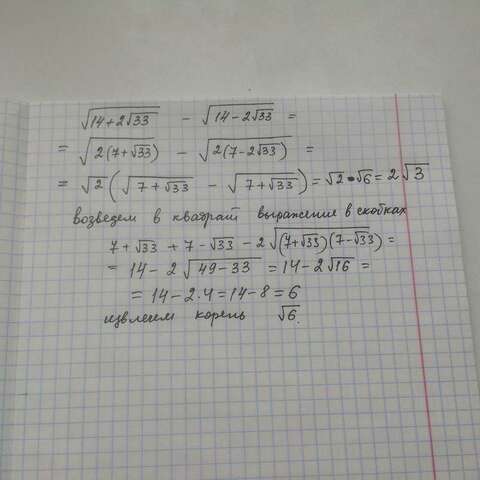 √(14+2√33) - √(14-2√33) =
= √(2(7+√33)) - √(2(7-2√33)) =
= √2(√(7+√33) - √(7+√33)) = √2 • √6 = 2√3
возведем в квадрат выражение в скобках
7+√33 + 7-√33 - 2√((7+√33)(7-√33)) =
= 14 - 2√(49-33) = 14 - 2√16 =
= 14 - 2·4 = 14 - 8 = 6
извлечем корень √6.